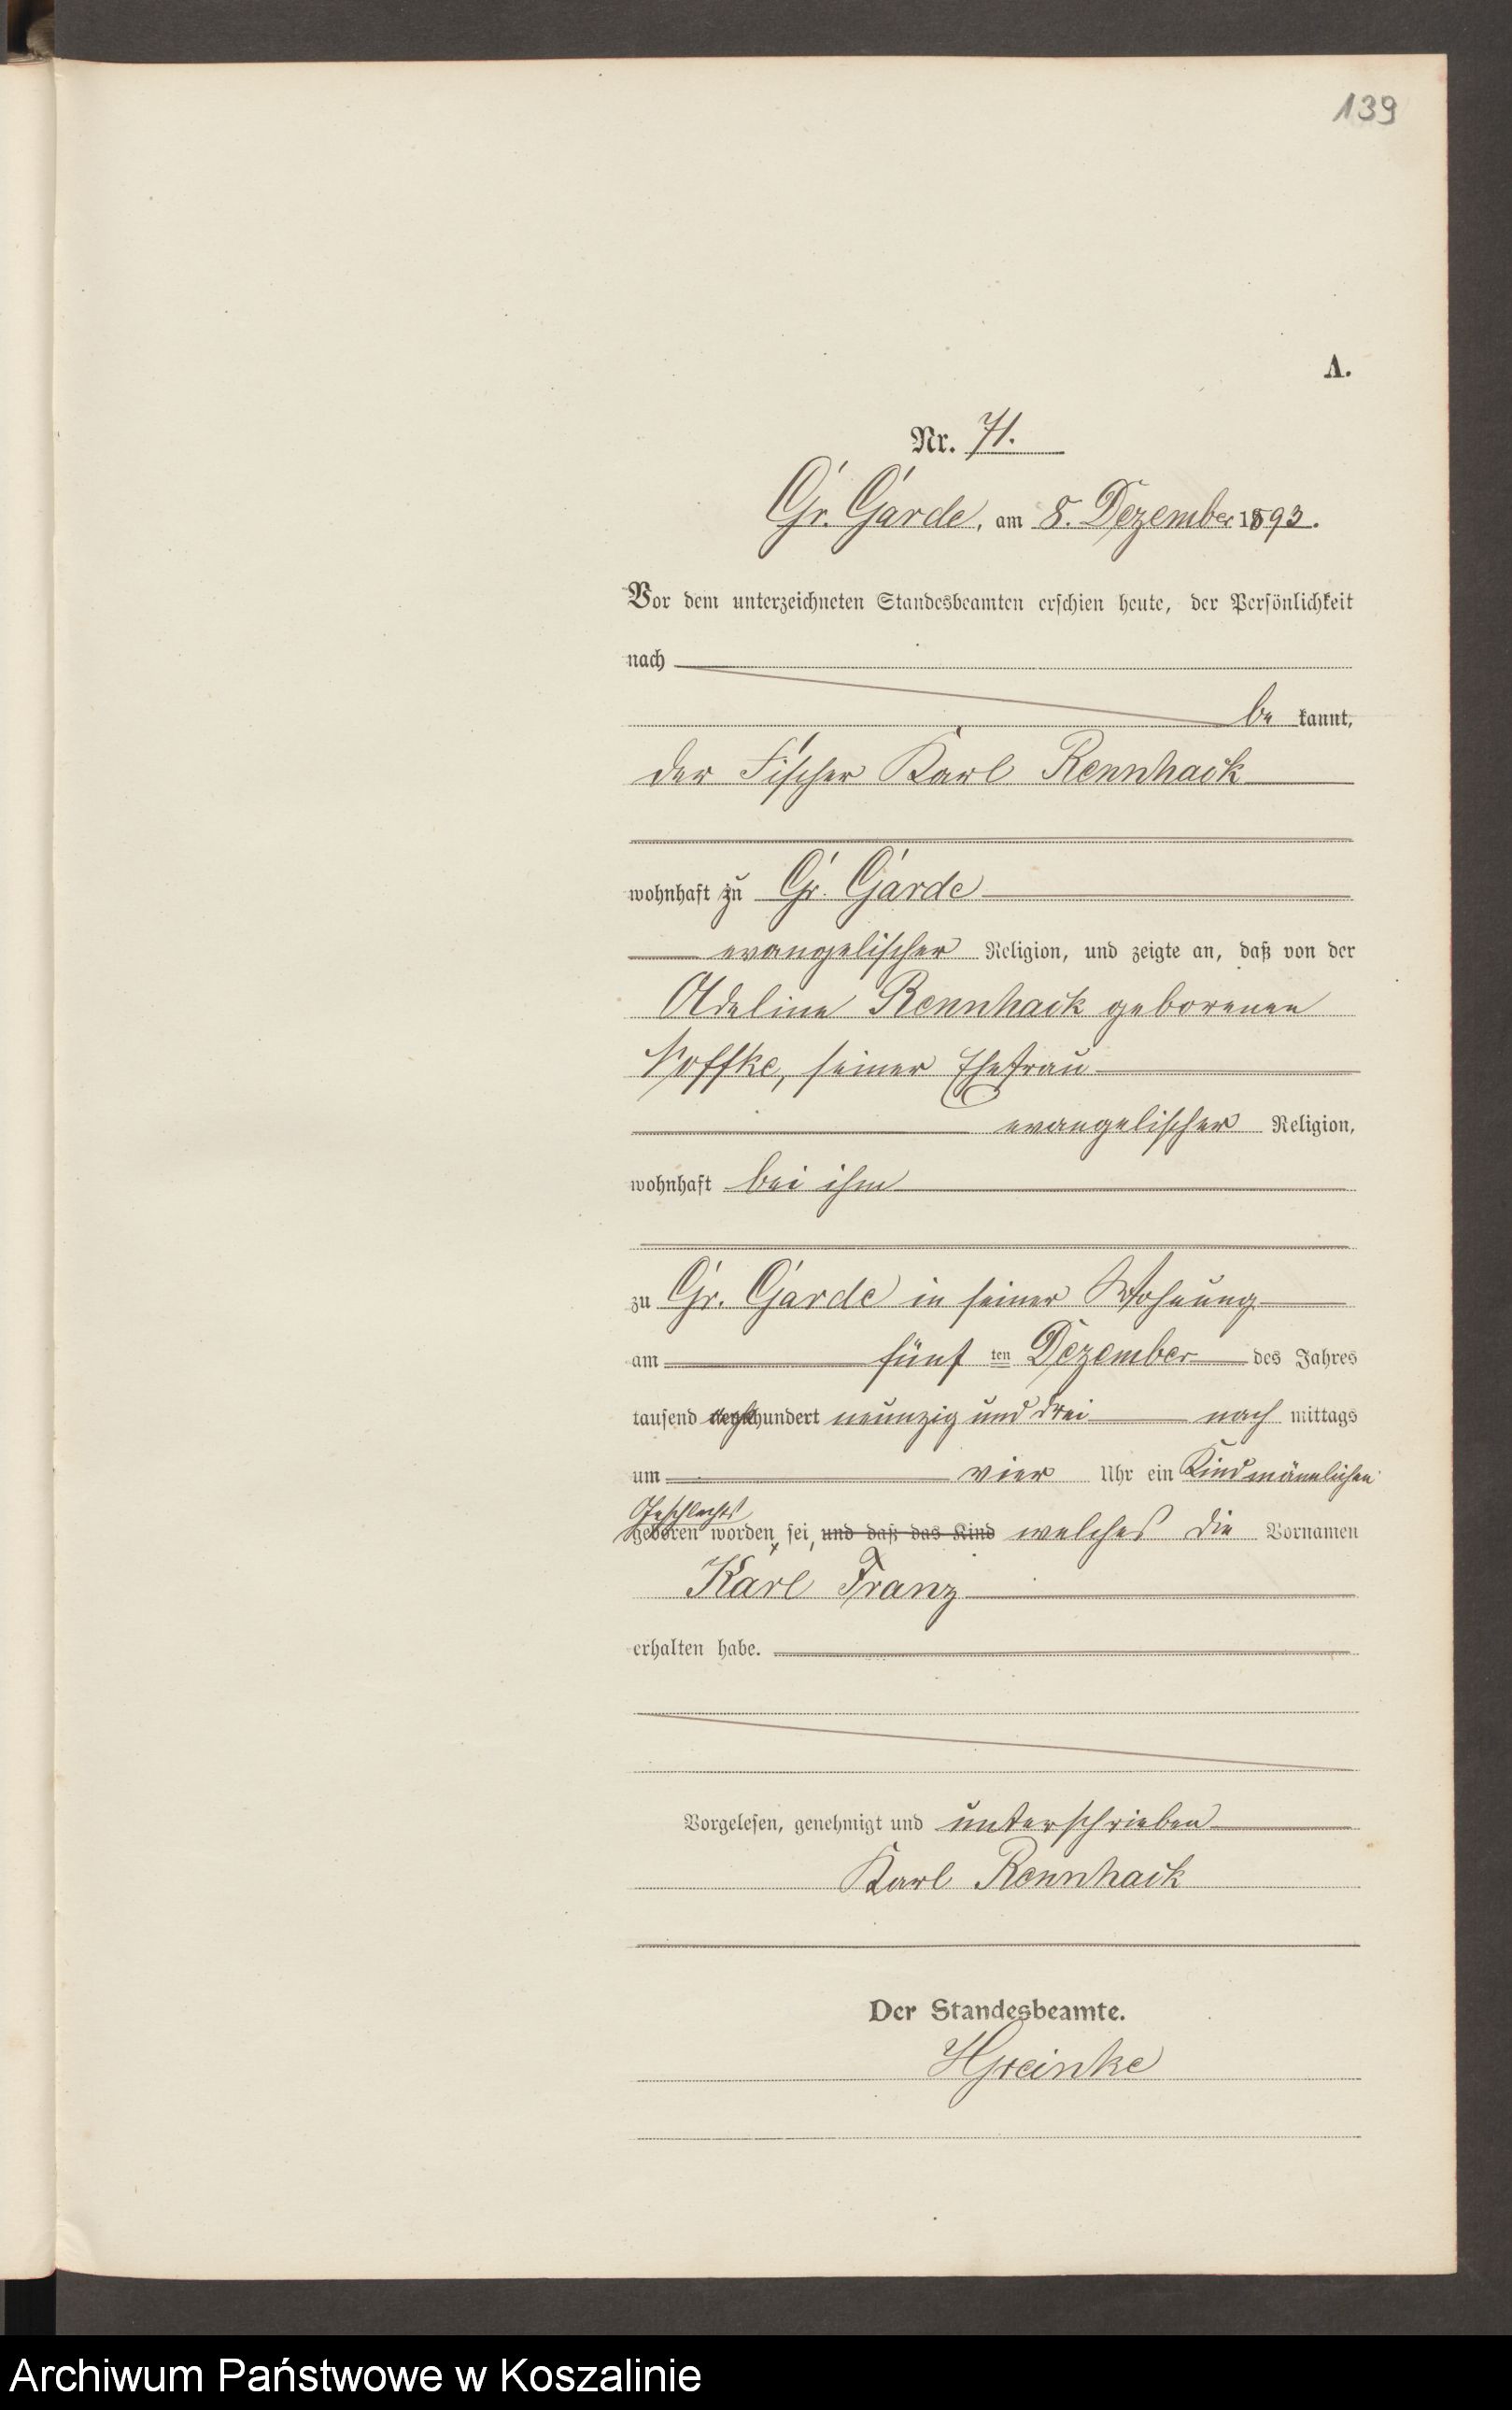 139
A.
Nr. 71.
Gr. Garde, am 8. Dezember 1893.
Vor dem unterzeichneten Standesbeamten erschien heute, der Persönlichkeit
nach
be kannt,
der Fischer Karl Rennhack
wohnhaft zu Gr. Garde
evangelischer Religion, und zeigte an, daß von der
Adeline Rennhack geborenen
Noffke, seiner Ehefrau
evangelischer Religion,
wohnhaft bei ihm
zu Gr. Garde in seiner Wohnung
am fünf ten Dezember des Jahres
tausend achthundert neunzig und drei nach mittags
um vier Uhr ein Kind männlichen
Geschlechts
geboren worden sei, und daß das Kind welches die Vornamen
Karl Franz
erhalten habe.
Vorgelesen, genehmigt und unterschrieben
Karl Rennhack
Der Standesbeamte.
Archiwum Państwowe w Koszalinie